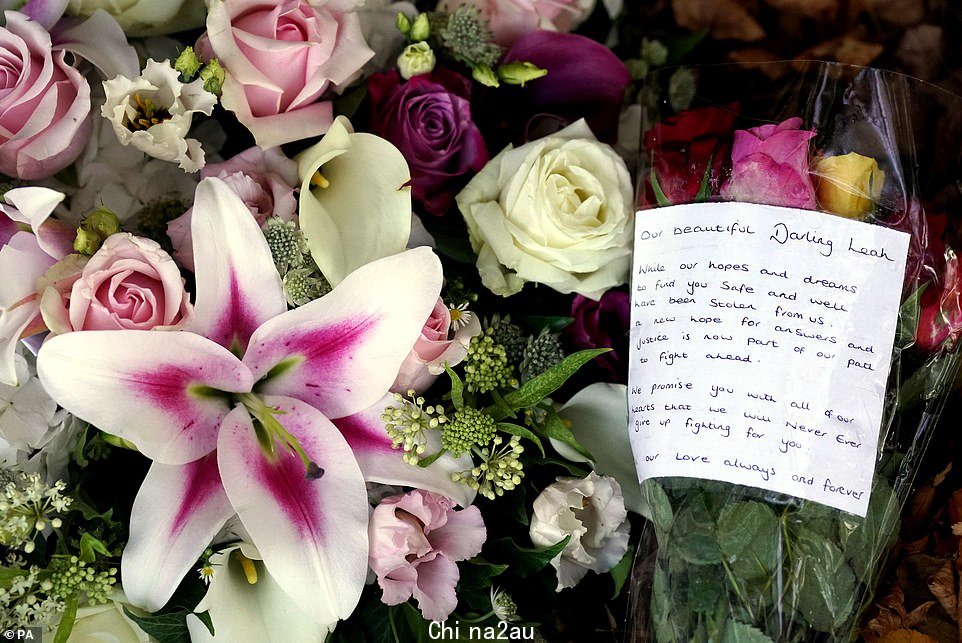 Our beautiful Darling Leah
While our hopes and dreams
to find you safe and well
have been stolen from us.
a new hope for answers and
Justice is now part of our path
to fight ahead.
We promise you with all of our
hearts that we will Never Ever
give up fighting for you.
our Love always and forever
©PA
Chi na2au